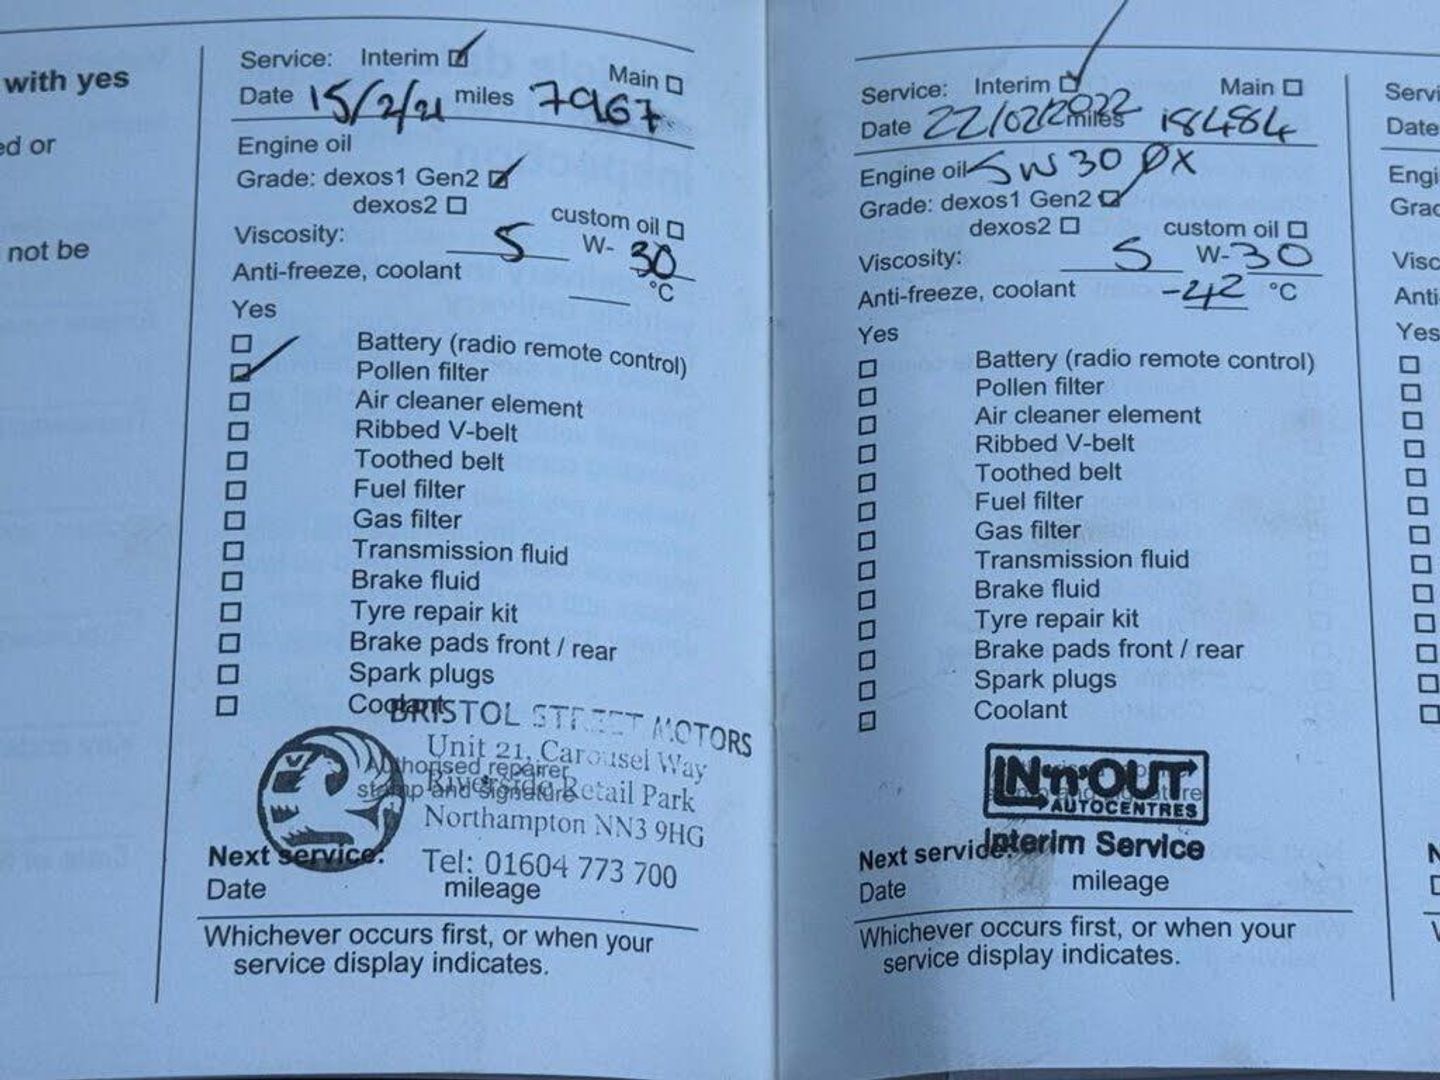 with yes
ed or
not be
Service: Interim Main
Date 15/2/21 miles 7967
Engine oil
Grade: dexos1 Gen2
dexos2 custom oil
Viscosity: 5 W- 30
Anti-freeze, coolant °C
Yes
Battery (radio remote control)
Pollen filter
Air cleaner element
Ribbed V-belt
Toothed belt
Fuel filter
Gas filter
Transmission fluid
Brake fluid
Tyre repair kit
Brake pads front / rear
Spark plugs
Coolant
BRISTOL STREET MOTORS
Unit 21, Carousel Way
Authorised repairer
Riverside Retail Park
stamp and signature
Northampton NN3 9HG
Next service:
Tel: 01604 773 700
Date mileage
Whichever occurs first, or when your
service display indicates.
Service: Interim Main
Date 22/02/2022 miles 18484
Engine oil 5W30 DX
Grade: dexos1 Gen2
dexos2 custom oil
Viscosity: 5 W- 30
Anti-freeze, coolant -42 °C
Yes
Battery (radio remote control)
Pollen filter
Air cleaner element
Ribbed V-belt
Toothed belt
Fuel filter
Gas filter
Transmission fluid
Brake fluid
Tyre repair kit
Brake pads front / rear
Spark plugs
Coolant
IN'n'OUT
AUTOCENTRES
Interim Service
Next service:
Date mileage
Whichever occurs first, or when your
service display indicates.
Servi
Date
Engi
Grad
Visc
Anti-
Yes